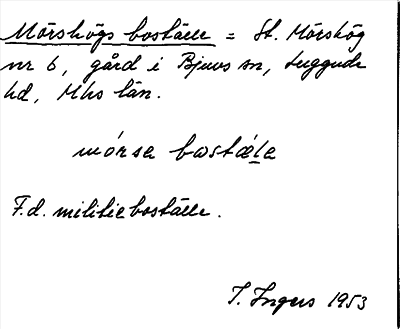 Mörshögs boställe = St. Mörshög
nr 6, gård i Bjuvs sn, Luggude
hd, Mhs län.
mórsa bωstǽle
F.d. militieboställe.
I. Ingers 1953